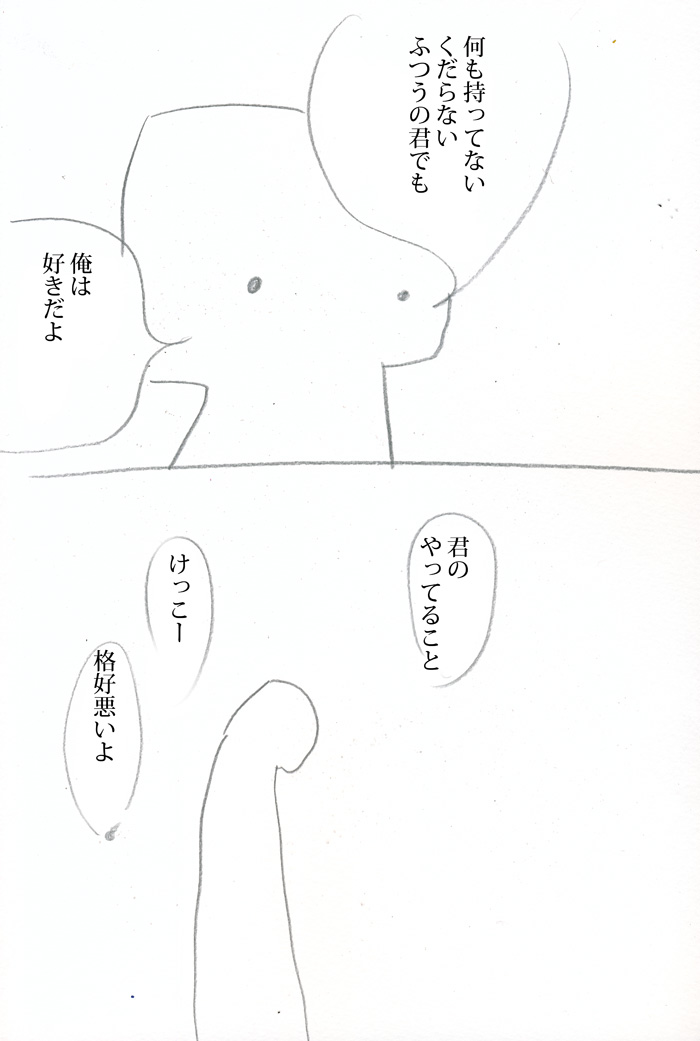 何も持ってない
くだらない
ふつうの君でも
俺は
好きだよ
君の
やってること
けっこー
格好悪いよ